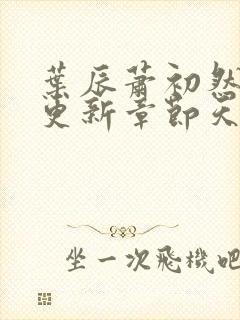 葉辰蕭初然
更新章節天
坐一次飛機吧